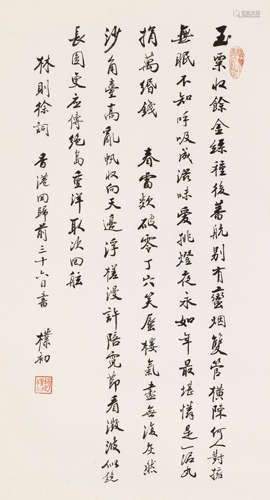 玉粟收餘金絲種後蕃航別有蠻烟雙管橫陳何人對擁
無眠不知呼吸成滋味愛挑燈夜永如年最堪憐是一泥丸
捐萬緡錢 春雷欻破零丁穴笑蜃樓氣盡無復灰然
沙角臺高亂帆收向天邊浮槎漫許陪霓節看澂波似鏡
長圓更應傳絕島重洋取次回舷
林則徐詞 香港回歸前三十六日書 樸初